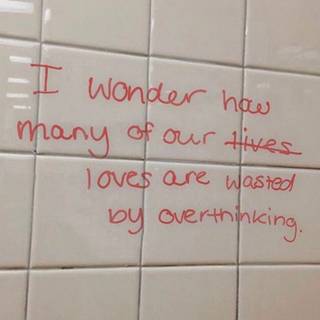 I wonder how
many of our lives
loves are wasted
by overthinking.